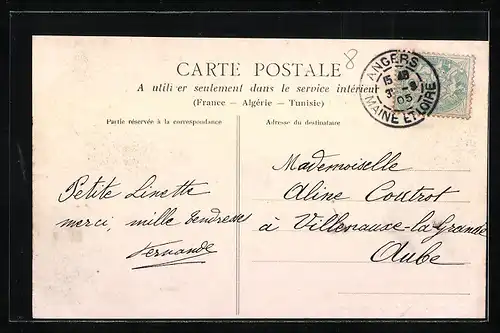 8
CARTE POSTALE
A utiliser seulement dans le service intérieur
(France — Algérie — Tunisie)
Partie réservée à la correspondance
Adresse du destinataire
ANGERS
MAINE ET LOIRE
05
Petite Linette
merci, mille tendresses
Fernande
Mademoiselle
Aline Coutrot
à Villenauxe-la-Grande
Aube